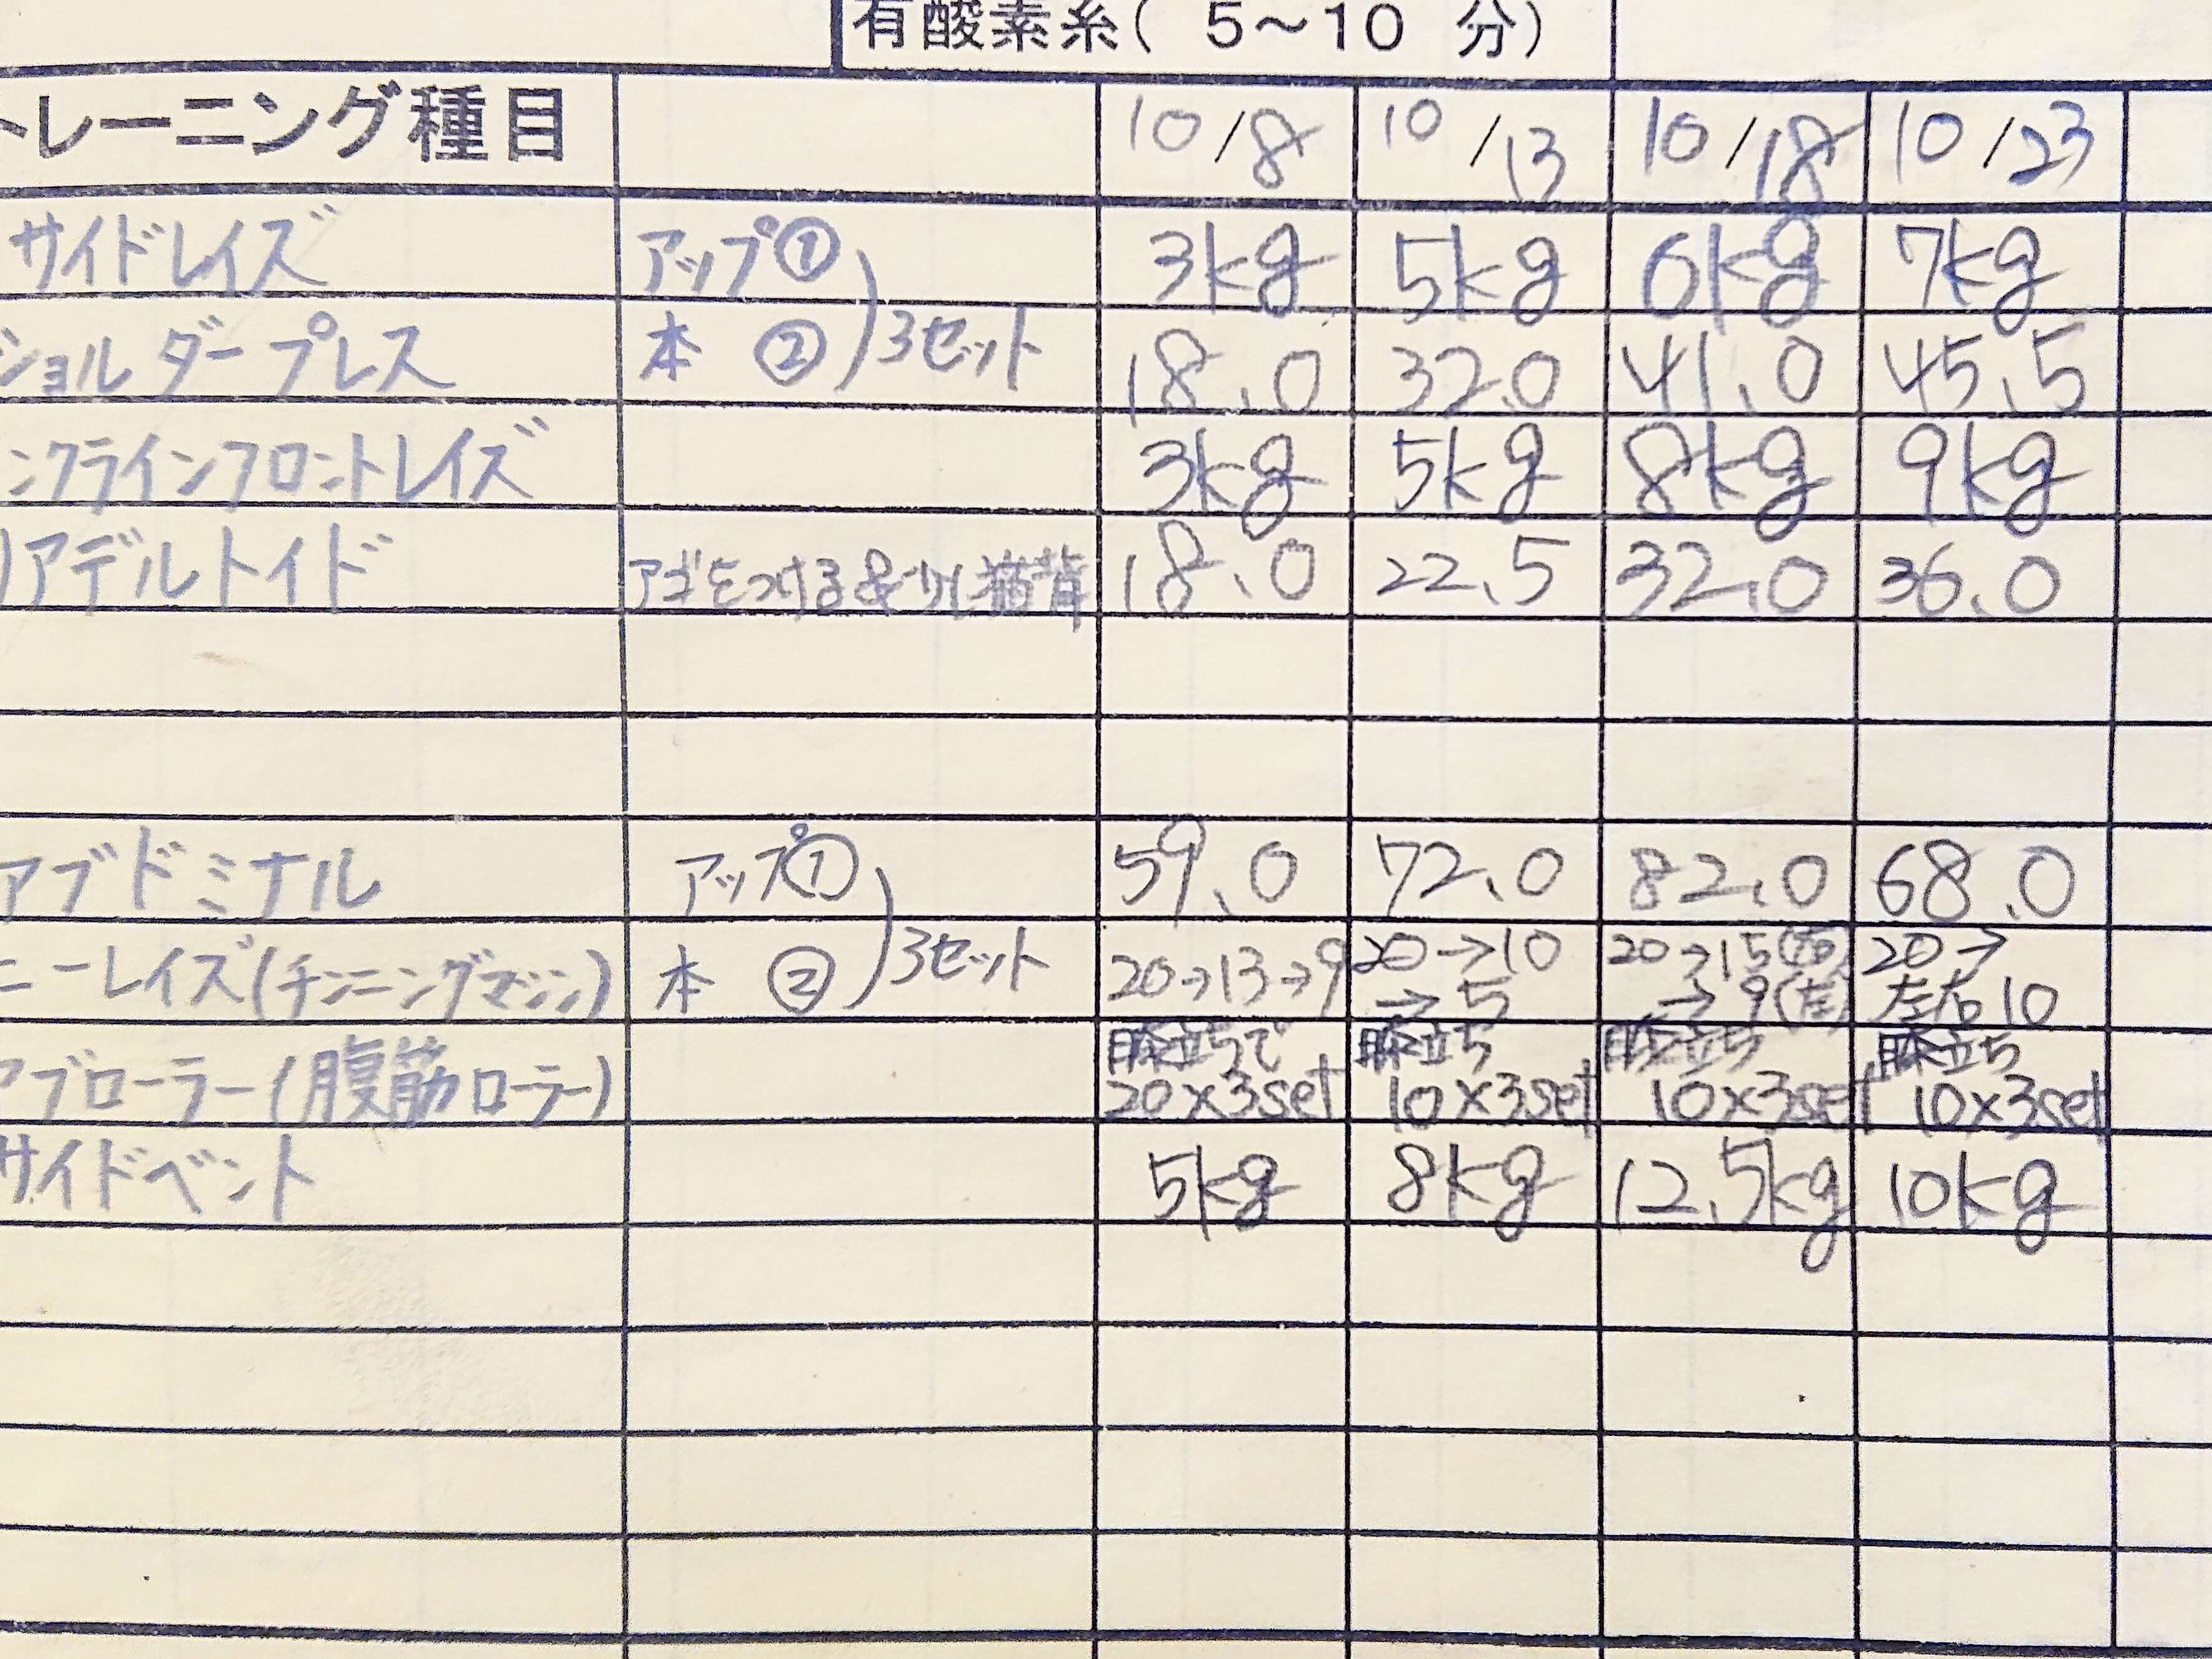 有酸素系( 5～10 分)
トレーニング種目 10/8 10/13 10/18 10/23
サイドレイズ アップ① 3kg 5kg 6kg 7kg
ショルダープレス 本 ② 3セット 18.0 32.0 41.0 45.5
ンクラインフロントレイズ 3kg 5kg 8kg 9kg
リアデルトイド アゴをつける&少し猫背 18.0 22.5 32.0 36.0
アブドミナル アップ① 59.0 72.0 82.0 68.0
ニーレイズ(チンニングマシン) 本 ② 3セット 20→13→9 20→10→5 20→15(右)→9(左) 20→左右10
アブローラー(腹筋ローラー) 膝立ちで20×3set 膝立ち10×3set 膝立ち10×3set 膝立ち10×3set
サイドベント 5kg 8kg 12.5kg 10kg